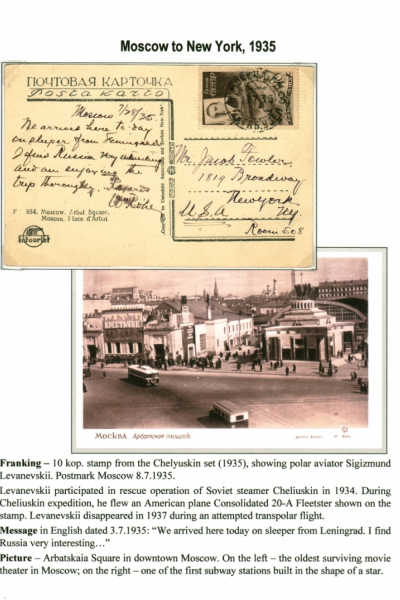 Moscow to New York, 1935
ПОЧТОВАЯ КАРТОЧКА
Poŝta karto
Moscow 7/28/35
We arrived here to-day
on sleeper from Leningrad
I find Russia very interesting
and am enjoying the
trip thoroughly. Regards
F 934. Moscow. Arbat Square.
Moscou. Place d'Arbat
Intourist
Mr. Jacob Fowler
1819 Broadway
New York
U.S.A. N.Y.
Room 508
МОСКВА Арбатская площадь
Franking – 10 kop. stamp from the Chelyuskin set (1935), showing polar aviator Sigizmund
Levanevskii. Postmark Moscow 8.7.1935.
Levanevskii participated in rescue operation of Soviet steamer Cheliuskin in 1934. During
Cheliuskin expedition, he flew an American plane Consolidated 20-A Fleetster shown on the
stamp. Levanevskii disappeared in 1937 during an attempted transpolar flight.
Message in English dated 3.7.1935: “We arrived here today on sleeper from Leningrad. I find
Russia very interesting…”
Picture – Arbatskaia Square in downtown Moscow. On the left – the oldest surviving movie
theater in Moscow; on the right – one of the first subway stations built in the shape of a star.